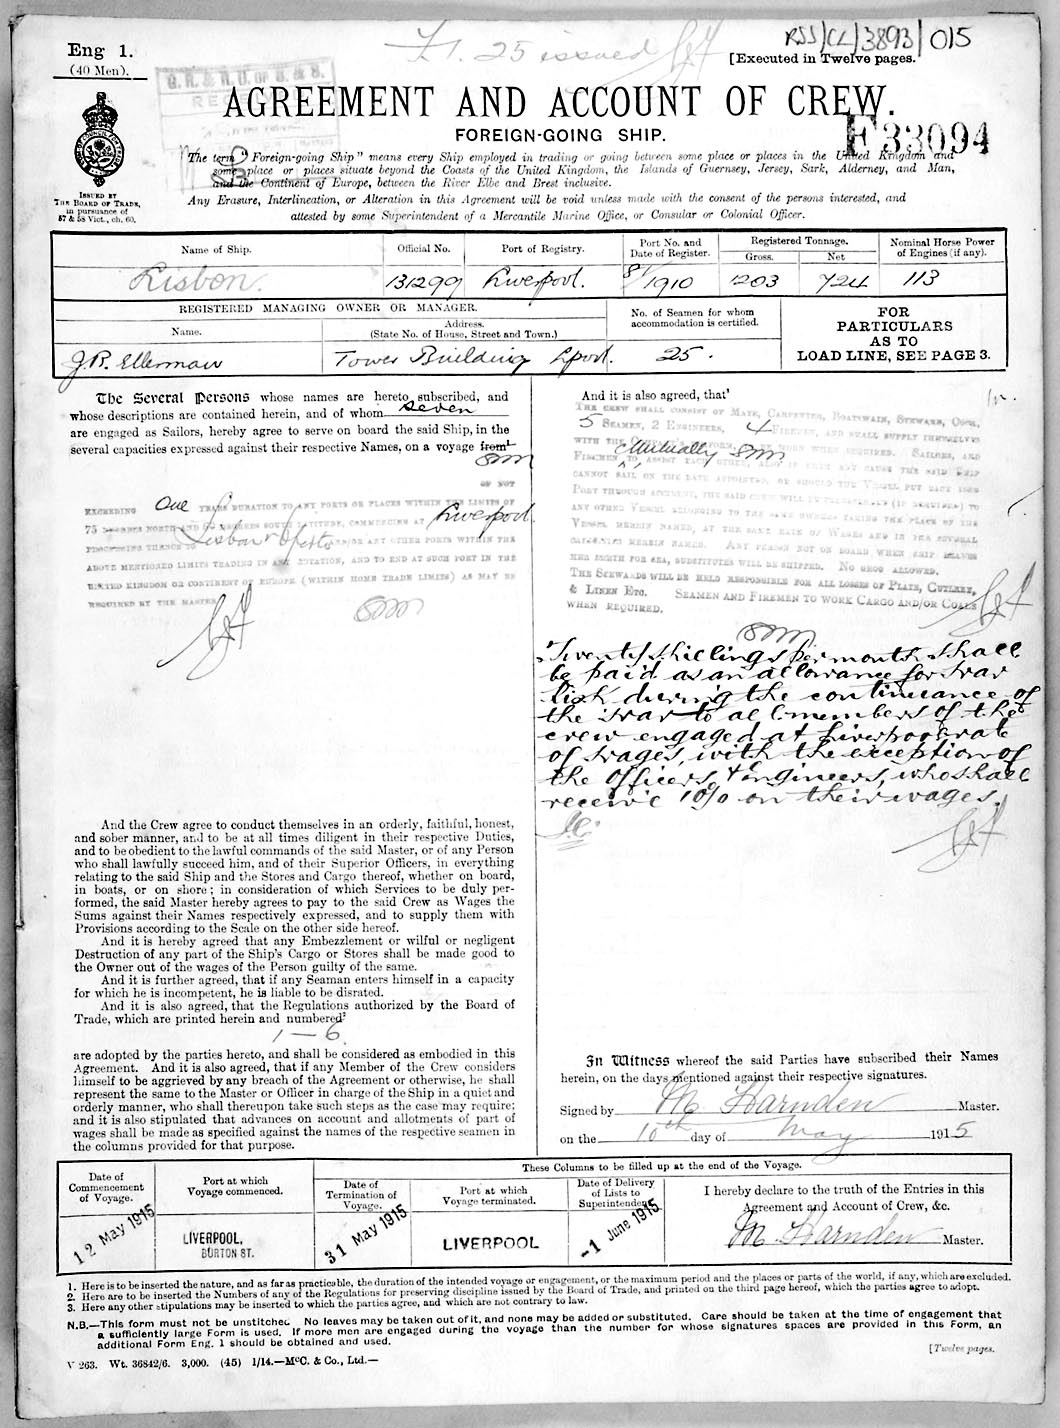 Eng 1.
(40 Men).
F1. 25 issued
RSS/CL/3893/015
[Executed in Twelve pages.
G. R. & R. U. OF S. & S.
AGREEMENT AND ACCOUNT OF CREW.
FOREIGN-GOING SHIP.
E33094
The term "Foreign-going Ship" means every Ship employed in trading or going between some place or places in the United Kingdom and
some place or places situate beyond the Coasts of the United Kingdom, the Islands of Guernsey, Jersey, Sark, Alderney, and Man,
and the Continent of Europe, between the River Elbe and Brest inclusive.
Any Erasure, Interlineation, or Alteration in this Agreement will be void unless made with the consent of the persons interested, and
attested by some Superintendent of a Mercantile Marine Office, or Consular or Colonial Officer.
ISSUED BY
THE BOARD OF TRADE,
in pursuance of
57 & 58 Vict., ch. 60.
Name of Ship.
Official No.
Port of Registry.
Port No. and
Date of Register.
Registered Tonnage.
Gross.
Net
Nominal Horse Power
of Engines (if any).
Lisbon.
131299
Liverpool.
8/1910
1203
724
113
REGISTERED MANAGING OWNER OR MANAGER.
Name.
Address.
(State No. of House, Street and Town.)
No. of Seamen for whom
accommodation is certified.
FOR
PARTICULARS
AS TO
LOAD LINE, SEE PAGE 3.
J.R. Ellerman
Tower Building Lpool.
25.
The Several Persons whose names are hereto subscribed, and
whose descriptions are contained herein, and of whom seven
are engaged as Sailors, hereby agree to serve on board the said Ship, in the
several capacities expressed against their respective Names, on a voyage from¹
OF NOT
EXCEEDING One YEARS DURATION TO ANY PORTS OR PLACES WITHIN THE LIMITS OF
75 DEGREES NORTH AND 60 DEGREES SOUTH LATITUDE, COMMENCING AT Liverpool
PROCEEDING THENCE TO Lisbon Oporto AND/OR ANY OTHER PORTS WITHIN THE
ABOVE MENTIONED LIMITS TRADING IN ANY ROTATION, AND TO END AT SUCH PORT IN THE
UNITED KINGDOM OR CONTINENT OF EUROPE (WITHIN HOME TRADE LIMITS) AS MAY BE
REQUIRED BY THE MASTER
And the Crew agree to conduct themselves in an orderly, faithful, honest,
and sober manner, and to be at all times diligent in their respective Duties,
and to be obedient to the lawful commands of the said Master, or of any Person
who shall lawfully succeed him, and of their Superior Officers, in everything
relating to the said Ship and the Stores and Cargo thereof, whether on board,
in boats, or on shore; in consideration of which Services to be duly per-
formed, the said Master hereby agrees to pay to the said Crew as Wages the
Sums against their Names respectively expressed, and to supply them with
Provisions according to the Scale on the other side hereof.
And it is hereby agreed that any Embezzlement or wilful or negligent
Destruction of any part of the Ship's Cargo or Stores shall be made good to
the Owner out of the wages of the Person guilty of the same.
And it is further agreed, that if any Seaman enters himself in a capacity
for which he is incompetent, he is liable to be disrated.
And it is also agreed, that the Regulations authorized by the Board of
Trade, which are printed herein and numbered²
1 — 6
are adopted by the parties hereto, and shall be considered as embodied in this
Agreement. And it is also agreed, that if any Member of the Crew considers
himself to be aggrieved by any breach of the Agreement or otherwise, he shall
represent the same to the Master or Officer in charge of the Ship in a quiet and
orderly manner, who shall thereupon take such steps as the case may require;
and it is also stipulated that advances on account and allotments of part of
wages shall be made as specified against the names of the respective seamen in
the columns provided for that purpose.
And it is also agreed, that³
THE CREW SHALL CONSIST OF MATE, CARPENTER, BOATSWAIN, STEWARD, COOK,
5 SEAMEN, 2 ENGINEERS, 4 FIREMEN, AND SHALL SUPPLY THEMSELVES
WITH THE COMPANY'S UNIFORM, TO BE WORN WHEN REQUIRED. SAILORS, AND
FIREMEN mutually TO ASSIST EACH OTHER, ALSO IF FROM ANY CAUSE THE SAID SHIP
CANNOT SAIL ON THE DATE APPOINTED, OR SHOULD THE VESSEL PUT BACK INTO
PORT THROUGH ACCIDENT, THE SAID CREW WILL BE TRANSFERRED (IF REQUIRED) TO
ANY OTHER VESSEL BELONGING TO THE SAME OWNERS TAKING THE PLACE OF THE
VESSEL HEREIN NAMED, AT THE SAME RATE OF WAGES AND IN THE SEVERAL
CAPACITIES HEREIN NAMED. ANY PERSON NOT ON BOARD WHEN SHIP LEAVES
HER BERTH FOR SEA, SUBSTITUTES WILL BE SHIPPED. NO GROG ALLOWED.
THE STEWARDS WILL BE HELD RESPONSIBLE FOR ALL LOSSES OF PLATE, CUTLERY,
& LINEN ETC. SEAMEN AND FIREMEN TO WORK CARGO AND/OR COALS
WHEN REQUIRED.
Twenty shillings per month shall
be paid as an allowance for war
risk during the continuance of
the war to all members of the
crew engaged at Liverpool rate
of wages, with the exception of
the Officers & Engineers, who shall
receive 10% on their wages.
In Witness whereof the said Parties have subscribed their Names
herein, on the days mentioned against their respective signatures.
Signed by M. Harnden Master.
on the 10th day of May 1915
These Columns to be filled up at the end of the Voyage.
Date of
Commencement
of Voyage.
Port at which
Voyage commenced.
Date of
Termination of
Voyage.
Port at which
Voyage terminated.
Date of Delivery
of Lists to
Superintendent
I hereby declare to the truth of the Entries in this
Agreement and Account of Crew, &c.
12 May 1915
LIVERPOOL,
BURTON ST.
31 May 1915
LIVERPOOL
-1 June 1915
M. Harnden Master.
1. Here is to be inserted the nature, and as far as practicable, the duration of the intended voyage or engagement, or the maximum period and the places or parts of the world, if any, which are excluded.
2. Here are to be inserted the Numbers of any of the Regulations for preserving discipline issued by the Board of Trade, and printed on the third page hereof, which the parties agree to adopt.
3. Here any other stipulations may be inserted to which the parties agree, and which are not contrary to law.
N.B.—This form must not be unstitched. No leaves may be taken out of it, and none may be added or substituted. Care should be taken at the time of engagement that
a sufficiently large Form is used. If more men are engaged during the voyage than the number for whose signatures spaces are provided in this Form, an
additional Form Eng. 1 should be obtained and used.
V 263. Wt. 36842/6. 3,000. (45) 1/14.—McC. & Co., Ltd.—
[Twelve pages.